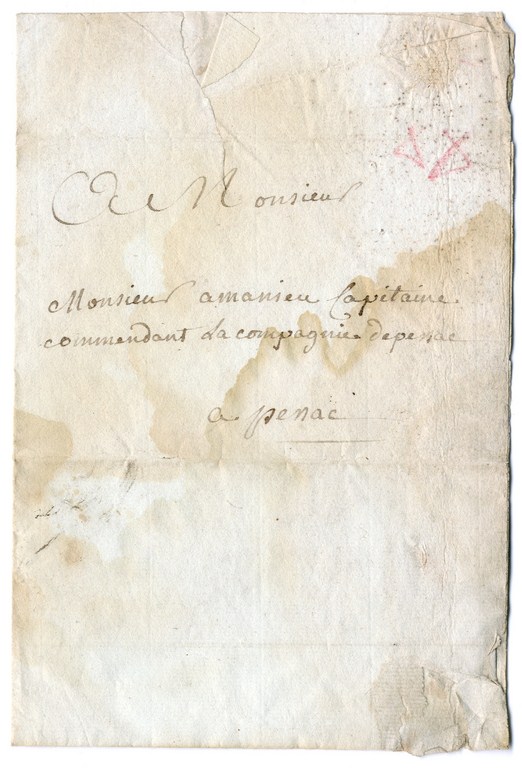 A Monsieur
Monsieur amanieu Capitaine
commendant La compagnie depessac
a pessac